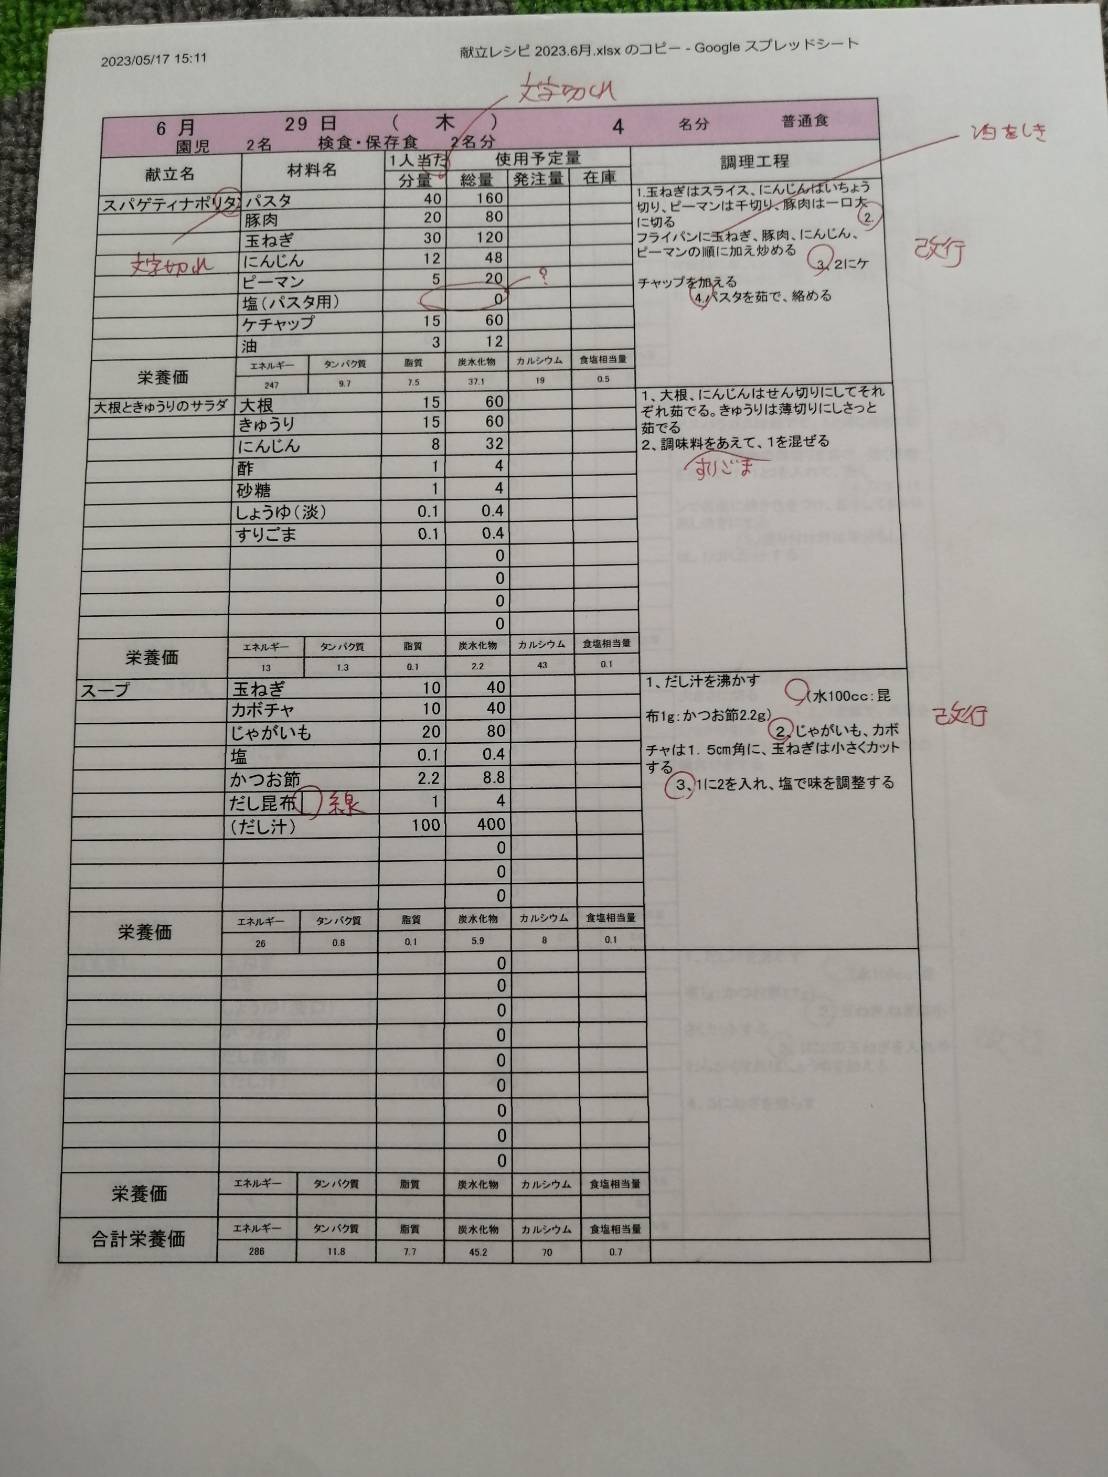 2023/05/17 15:11 献立レシピ 2023.6月.xlsx のコピー - Google スプレッドシート
文字切れ
6 月 29 日 ( 木 ) 4 名分 普通食
園児 2名 検食・保存食 2名分
油をしき
献立名 材料名 1人当た 使用予定量 調理工程
分量 総量 発注量 在庫
スパゲティナポリタ パスタ 40 160
豚肉 20 80
玉ねぎ 30 120
にんじん 12 48
ピーマン 5 20
塩(パスタ用) 0
ケチャップ 15 60
油 3 12
文字切れ
?
1.玉ねぎはスライス、にんじんはいちょう
切り、ピーマンは千切り、豚肉は一口大
に切る 2.
フライパンに玉ねぎ、豚肉、にんじん、
ピーマンの順に加え炒める
3、2にケ
チャップを加える
4.パスタを茹で、絡める
改行
栄養価 エネルギー タンパク質 脂質 炭水化物 カルシウム 食塩相当量
247 9.7 7.5 37.1 19 0.5
大根ときゅうりのサラダ 大根 15 60
きゅうり 15 60
にんじん 8 32
酢 1 4
砂糖 1 4
しょうゆ(淡) 0.1 0.4
すりごま 0.1 0.4
0
0
0
0
1、大根、にんじんはせん切りにしてそれ
ぞれ茹でる。きゅうりは薄切りにしさっと
茹でる
2、調味料をあえて、1を混ぜる
すりごま
栄養価 エネルギー タンパク質 脂質 炭水化物 カルシウム 食塩相当量
13 1.3 0.1 2.2 43 0.1
スープ 玉ねぎ 10 40
カボチャ 10 40
じゃがいも 20 80
塩 0.1 0.4
かつお節 2.2 8.8
だし昆布 線 1 4
(だし汁) 100 400
0
0
0
1、だし汁を沸かす
(水100cc:昆
布1g:かつお節2.2g)
2、じゃがいも、カボ
チャは1.5cm角に、玉ねぎは小さくカット
する
3、1に2を入れ、塩で味を調整する
改行
栄養価 エネルギー タンパク質 脂質 炭水化物 カルシウム 食塩相当量
26 0.8 0.1 5.9 8 0.1
0
0
0
0
0
0
0
0
0
栄養価 エネルギー タンパク質 脂質 炭水化物 カルシウム 食塩相当量
合計栄養価 エネルギー タンパク質 脂質 炭水化物 カルシウム 食塩相当量
286 11.8 7.7 45.2 70 0.7